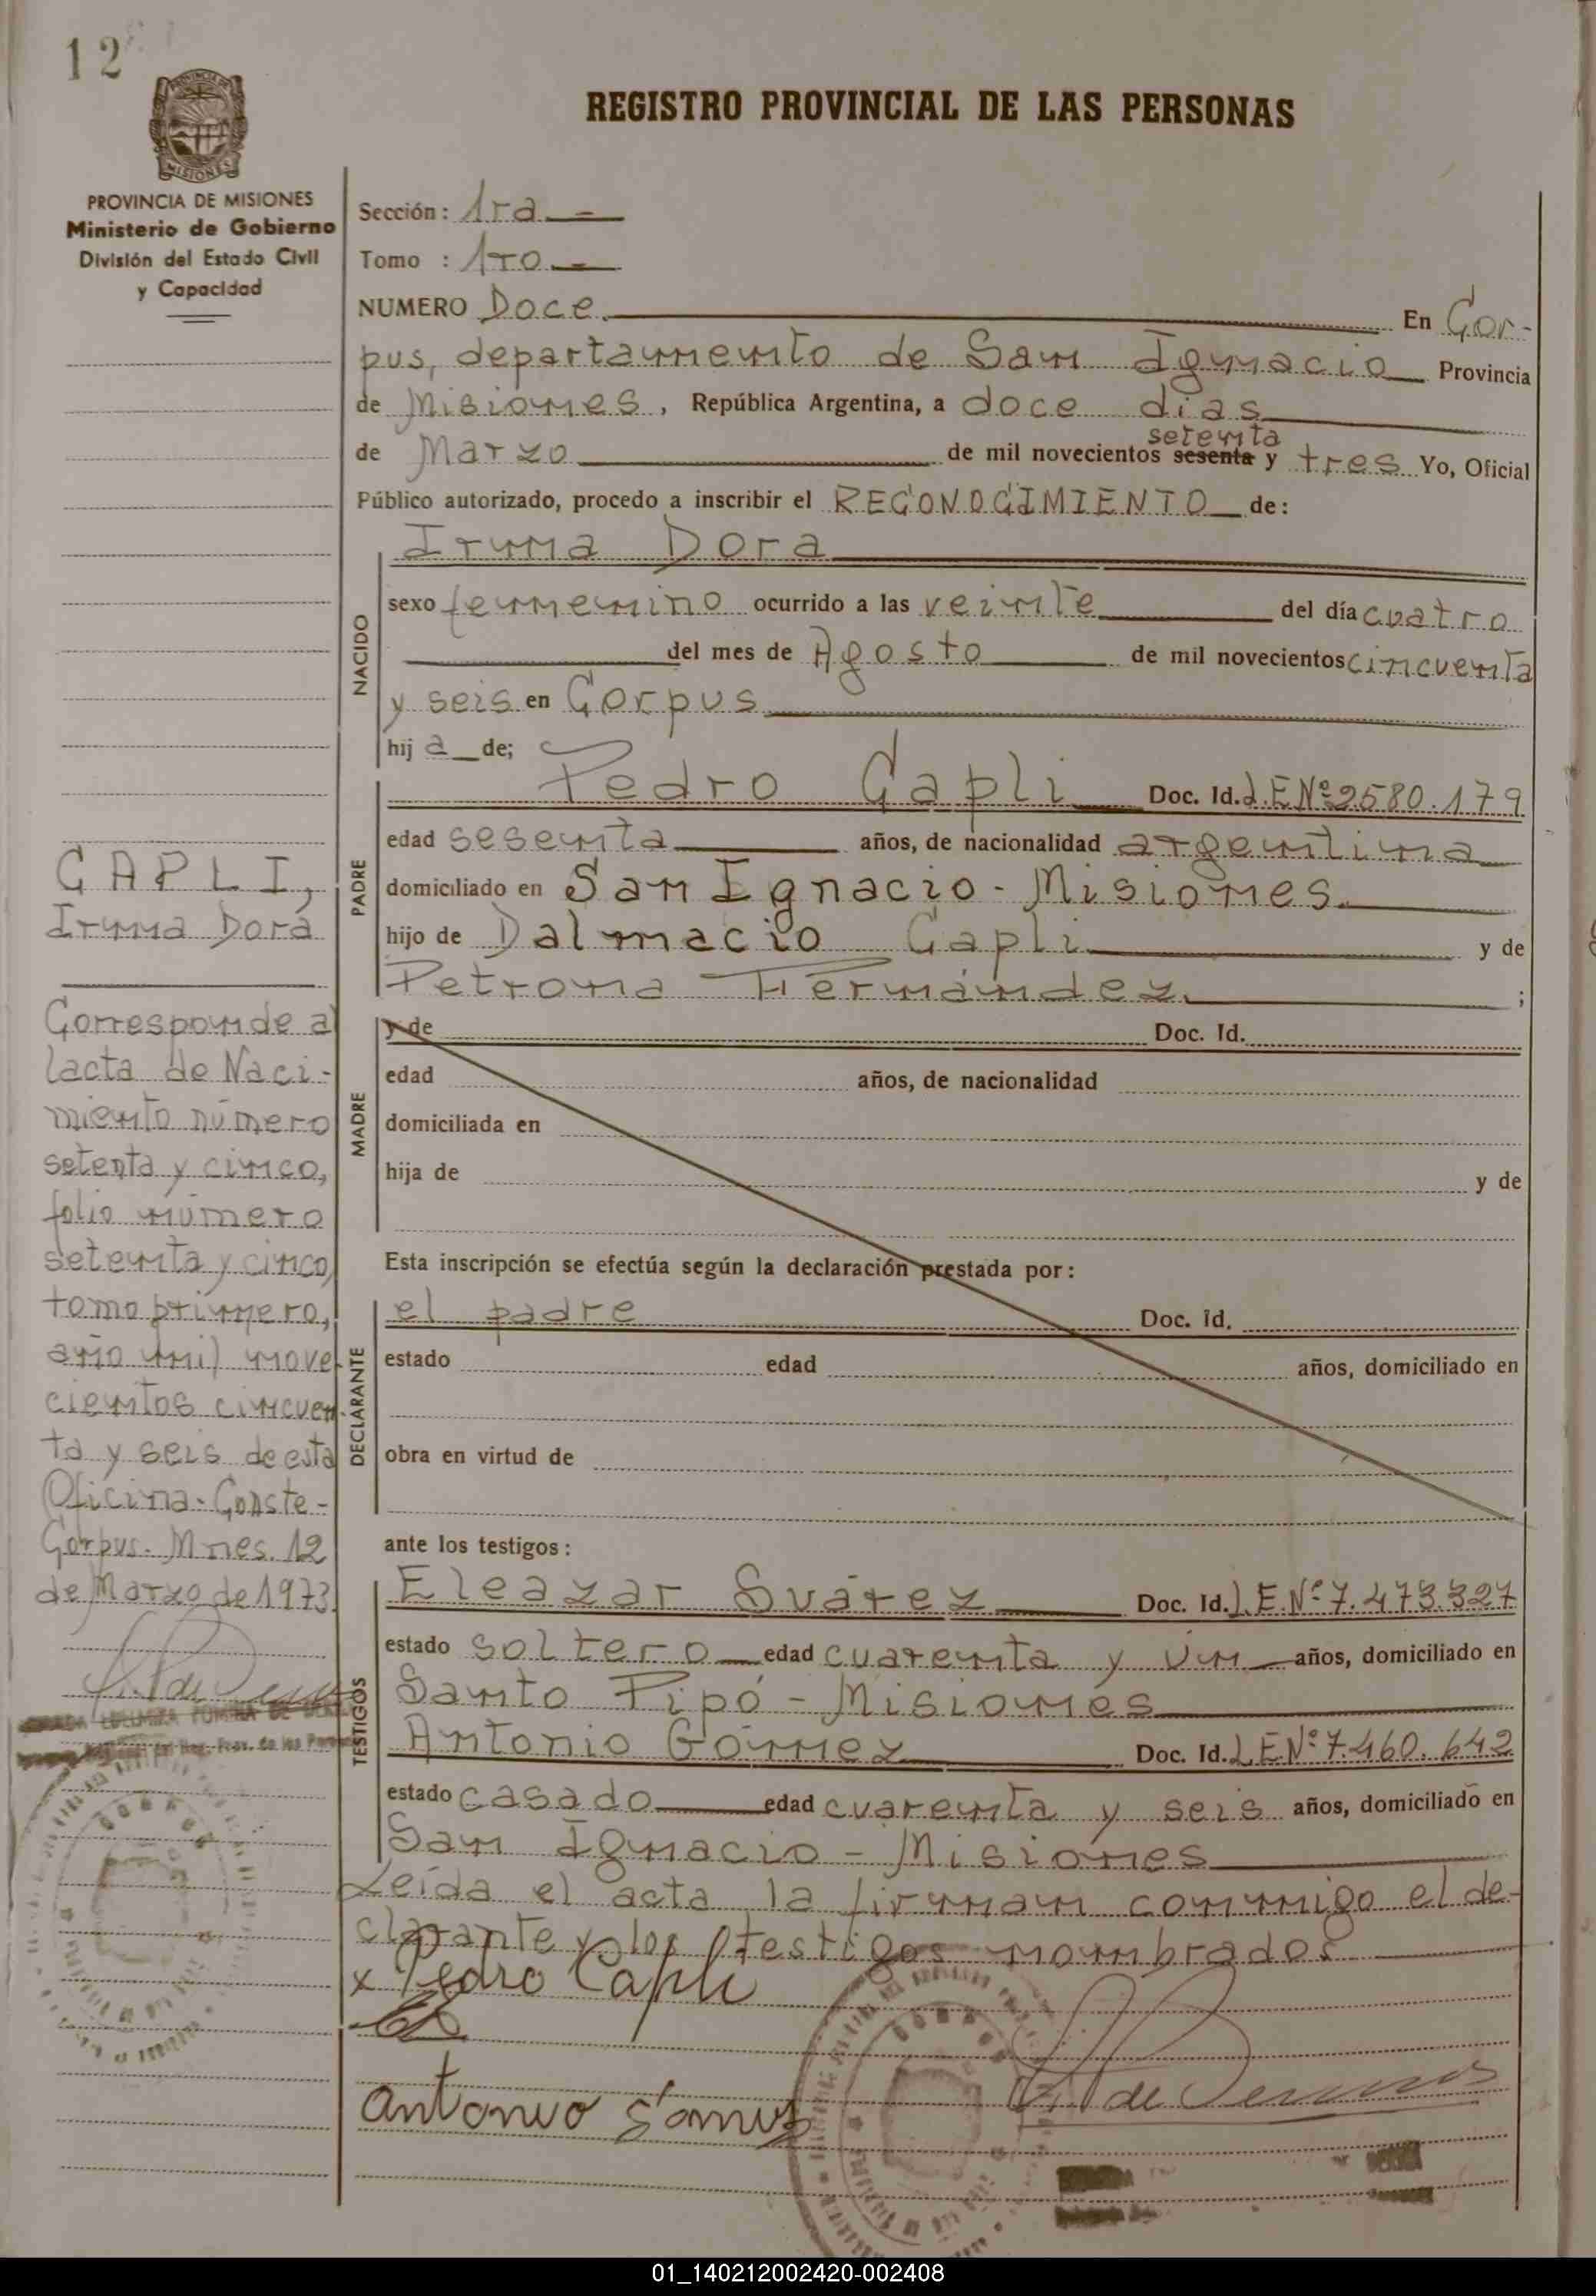 12
REGISTRO PROVINCIAL DE LAS PERSONAS
MISIONES
PROVINCIA DE MISIONES
Ministerio de Gobierno
División del Estado Civil
y Capacidad
Sección: 1ra.-
Tomo : 1ro.-
NUMERO Doce. En Cor-
pus, departamento de San Ignacio Provincia
de Misiones, República Argentina, a doce días
setenta
de Marzo de mil novecientos sesenta y tres Yo, Oficial
Público autorizado, procedo a inscribir el RECONOCIMIENTO de:
NACIDO
Irma Dora
sexo femenino ocurrido a las veinte del día cuatro
del mes de Agosto de mil novecientos cincuenta
y seis en Corpus
hija de;
PADRE
Pedro Capli Doc. Id. L.E Nº 2580.179
edad sesenta años, de nacionalidad argentina
domiciliado en San Ignacio - Misiones.
hijo de Dalmacio Capli y de
Petrona Fernández. ;
MADRE
y de Doc. Id.
edad años, de nacionalidad
domiciliada en
hija de y de
Esta inscripción se efectúa según la declaración prestada por:
DECLARANTE
el padre Doc. Id.
estado edad años, domiciliado en
obra en virtud de
ante los testigos:
TESTIGOS
Eleazar Suárez Doc. Id. L.E. Nº 7.473.327
estado soltero edad cuarenta y un años, domiciliado en
Santo Pipó - Misiones
Antonio Gómez Doc. Id. L.E Nº 7.460.642
estado casado edad cuarenta y seis años, domiciliado en
San Ignacio - Misiones
Leída el acta la firman conmigo el de-
clarante y los testigos nombrados
x Pedro Capli
Antonio Gomez
CAPLI,
Irma Dora
Corresponde a
lacta de Naci-
miento número
setenta y cinco,
folio número
setenta y cinco,
tomo primero,
año mil nove-
cientos cincuen-
ta y seis de esta
Oficina. Conste-
Corpus. Mnes. 12
de Marzo de 1973.
01_140212002420-002408